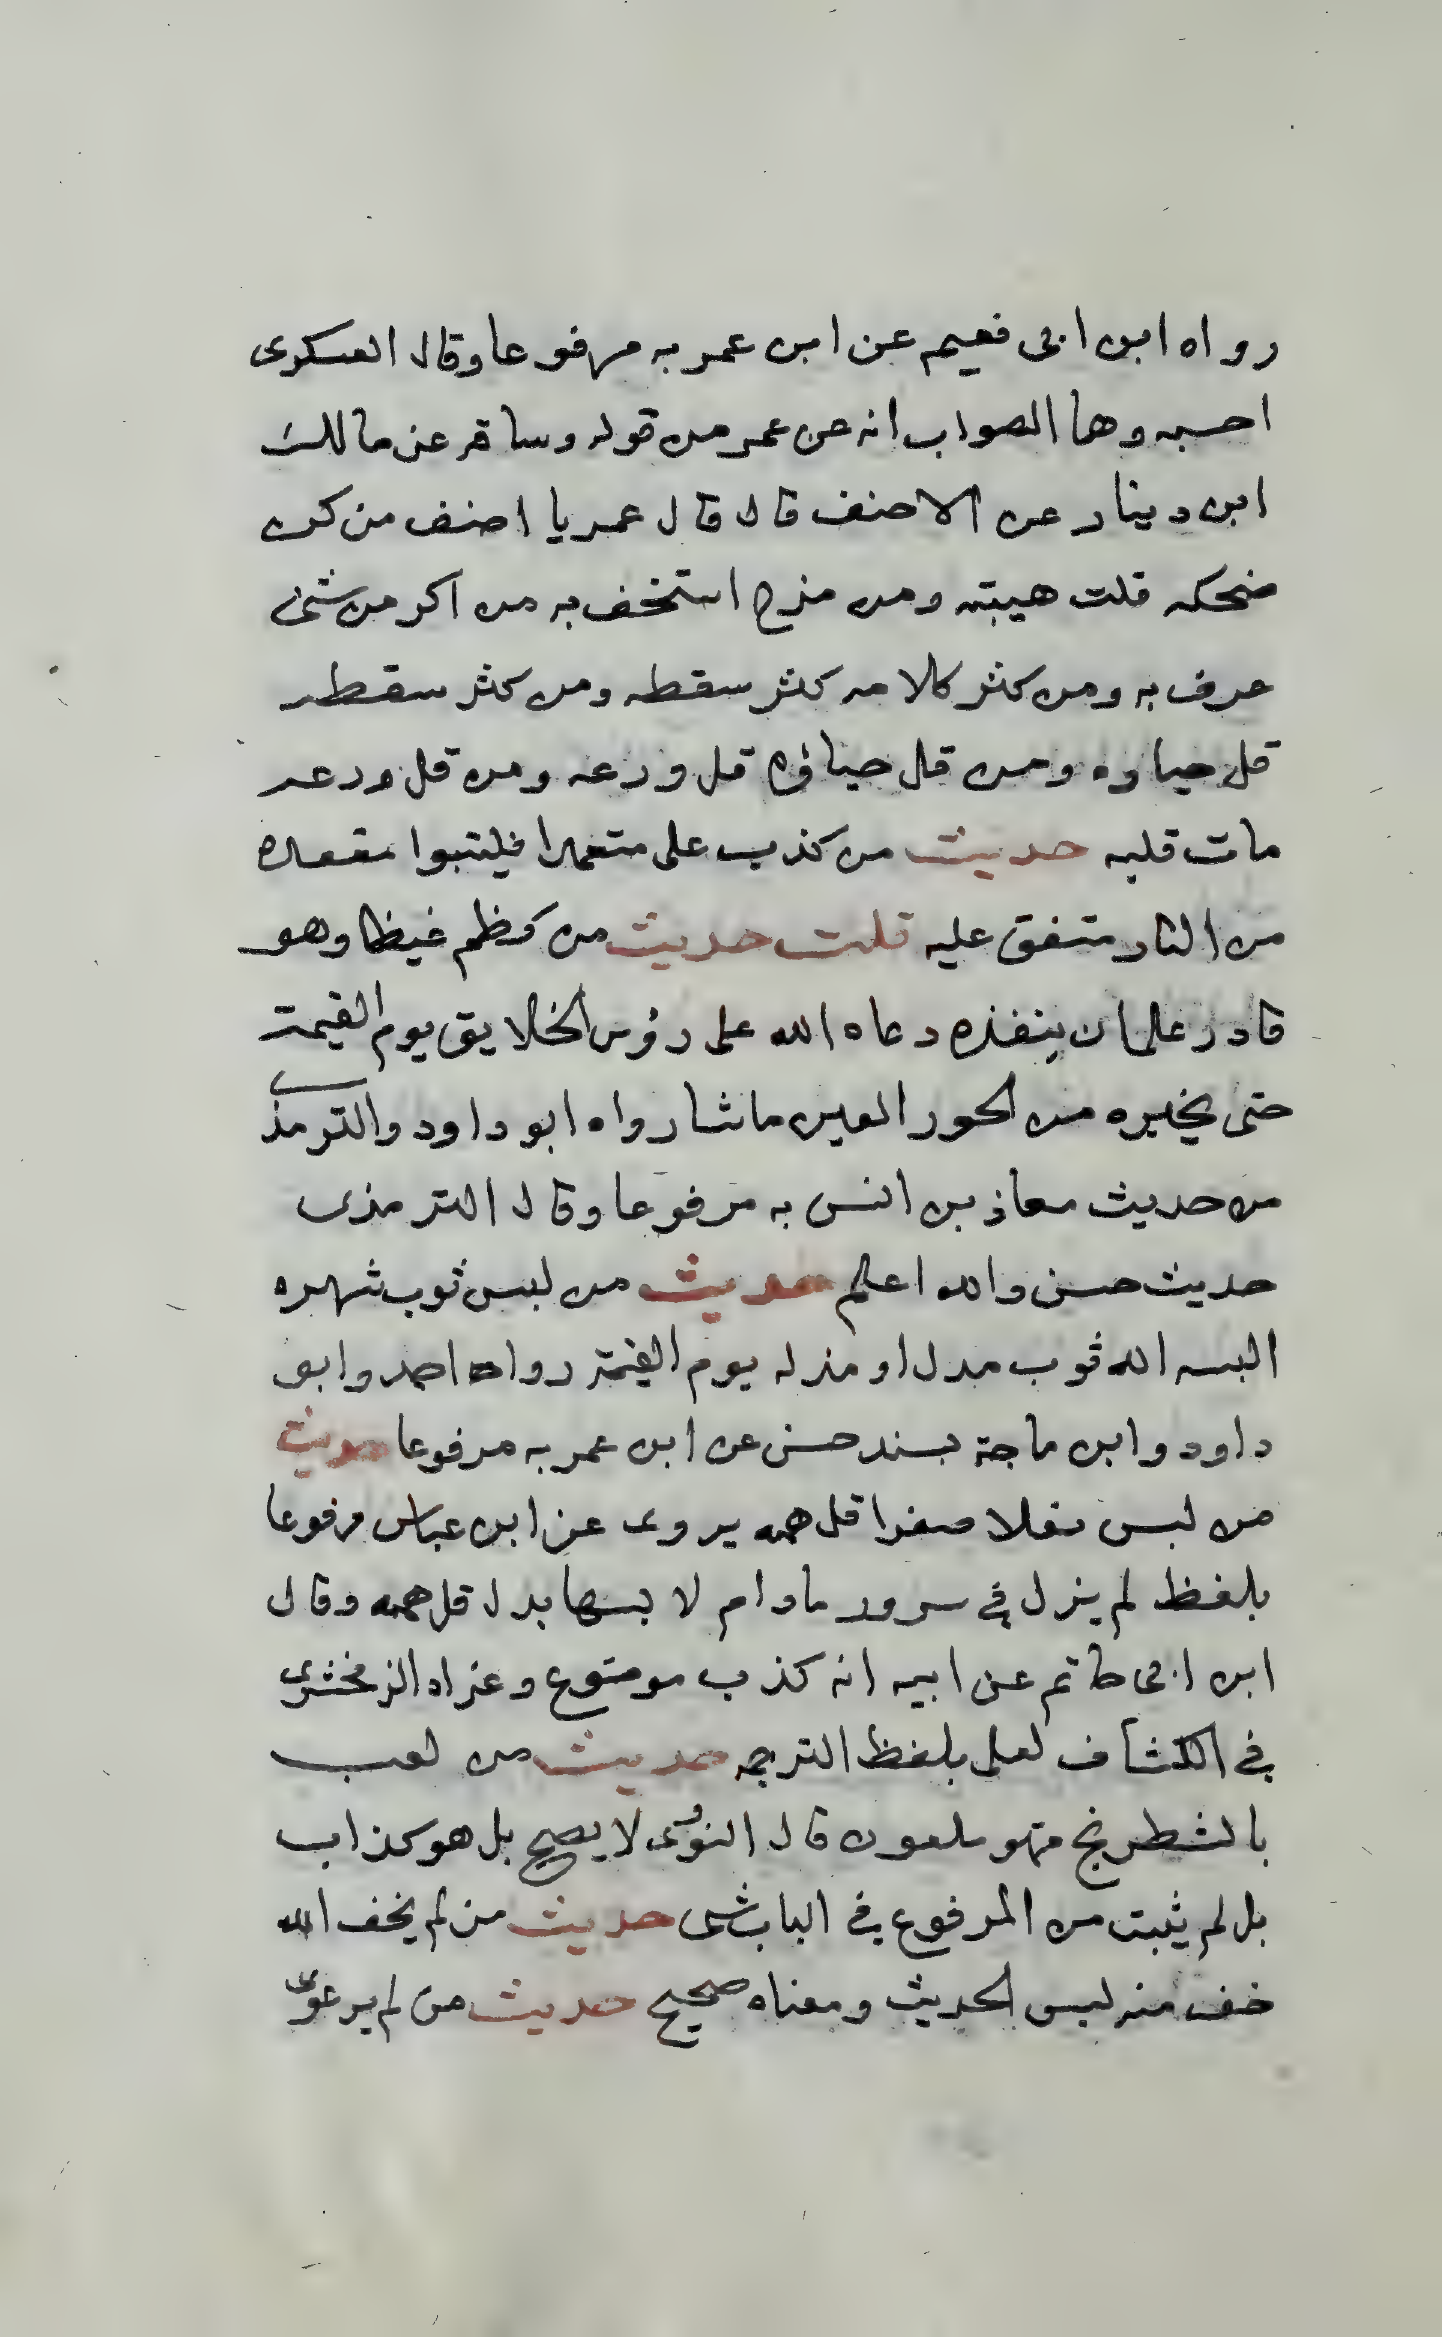 رواه ابن ابى نعيم عن ابن عمر به مرفوعا وقال العسكرى
احسبه وهما الصواب انه عن عمر من قوله وساقه عن مالك
ابن دينار عن الاحنف قال قال عمر يا احنف من كثر
ضحكه قلت هيبته ومن مزح استخف به من اكثر من شئ
عرف به ومن كثر كلامه كثر سقطه ومن كثر سقطه
قل حياوه ومن قل حياؤه قل ورعه ومن قل ورعه
مات قلبه حديث من كذب على متعمدا فليتبوا مقعده
من النار متفق عليه قلت حديث من كظم غيظا وهو
قادر على ان ينفذه دعاه الله على رؤس الخلايق يوم القيمة
حتى يخيره من الحور العين ما شا رواه ابو داود والترمذى
من حديث معاذ بن انس به مرفوعا وقال الترمذى
حديث حسن والله اعلم حديث من لبس ثوب شهره
البسه الله ثوب مدل او مذله يوم القيمة رواه احمد وابو
داود وابن ماجة بسند حسن عن ابن عمر به مرفوعا حديث
من لبس نعلا صفرا قل همه يروى عن ابن عباس مرفوعا
بلفظ لم يزل فى سرور مادام لابسها بدل قل همه وقال
ابن ابى حاتم عن ابيه انه كذب موضوع وعزاه الزمخشرى
فى الكشاف لعلى بلفظ الترجمه حديث من لعب
بالشطرنج فهو ملعون قال النووى لا يصح بل هو كذاب
بل لم يثبت من المرفوع فى الباب شى حديث من لم يخف الله
خف منه ليس الحديث ومعناه صحيح حديث من لم يرعوى